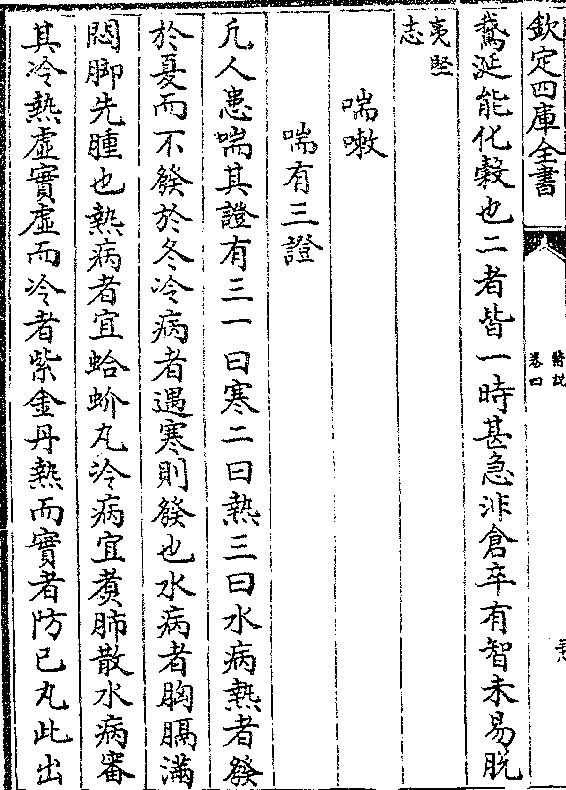 欽定四庫全書
醫說
卷四
鵞涎能化穀也二者皆一時甚急非倉卒有智未易脫
夷堅
志
喘嗽
喘有三證
凢人患喘其證有三一曰寒二曰熱三曰水病熱者發
於夏而不發於冬冷病者遇寒則發也水病者胸膈滿
悶脚先腫也熱病者宜蛤蚧丸冷病宜煑肺散水病審
其冷熱虛實虛而冷者紫金丹熱而實者防已丸此出